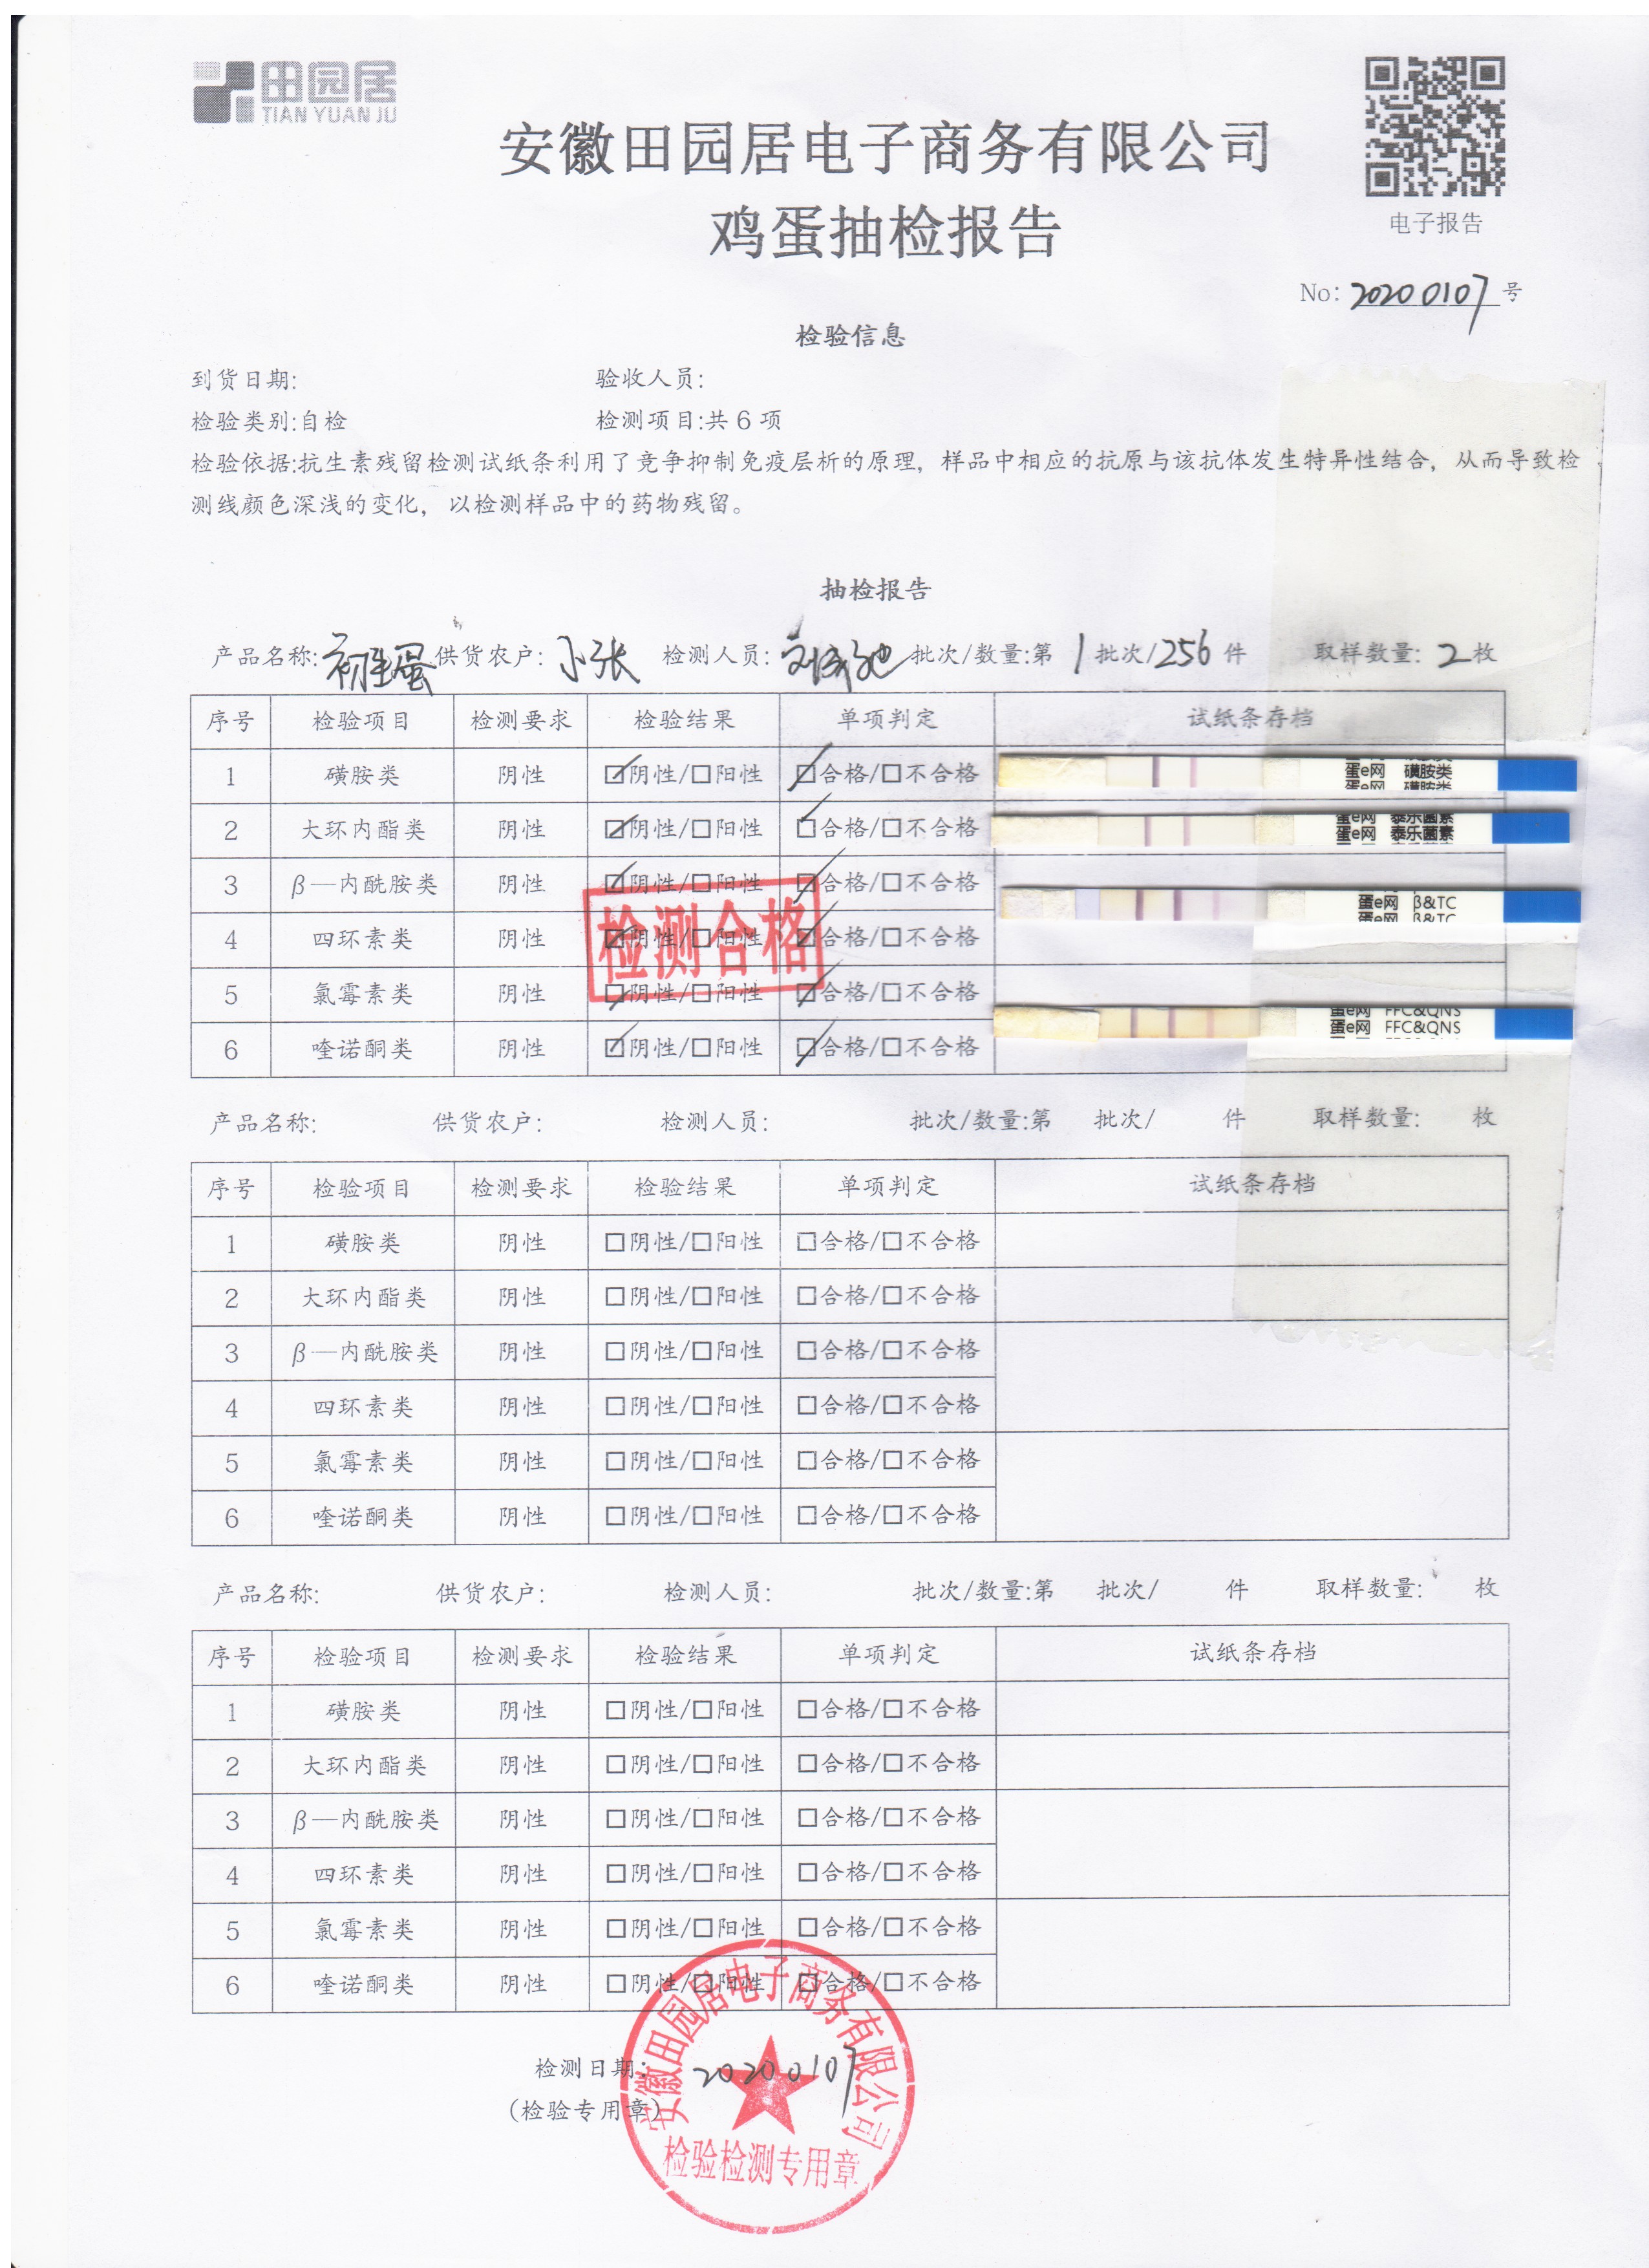 田园居
TIAN YUAN JU
安徽田园居电子商务有限公司
鸡蛋抽检报告
电子报告
No: 20200107 号
检验信息
到货日期: 验收人员:
检验类别:自检 检测项目:共 6 项
检验依据:抗生素残留检测试纸条利用了竞争抑制免疫层析的原理，样品中相应的抗原与该抗体发生特异性结合，从而导致检
测线颜色深浅的变化，以检测样品中的药物残留。
抽检报告
产品名称: 初生蛋 供货农户: 小张 检测人员: 批次/数量:第 1 批次/ 256 件 取样数量: 2 枚
序号 检验项目 检测要求 检验结果 单项判定 试纸条存档
1 磺胺类 阴性 ☑阴性/□阳性 ☑合格/□不合格 蛋e网 磺胺类
2 大环内酯类 阴性 ☑阴性/□阳性 ☑合格/□不合格 蛋e网 泰乐菌素
3 β—内酰胺类 阴性 ☑阴性/□阳性 ☑合格/□不合格 蛋e网 β&TC
4 四环素类 阴性 ☑阴性/□阳性 ☑合格/□不合格
5 氯霉素类 阴性 ☑阴性/□阳性 ☑合格/□不合格 蛋e网 FFC&QNS
6 喹诺酮类 阴性 ☑阴性/□阳性 ☑合格/□不合格
检测合格
产品名称: 供货农户: 检测人员: 批次/数量:第 批次/ 件 取样数量: 枚
序号 检验项目 检测要求 检验结果 单项判定 试纸条存档
1 磺胺类 阴性 □阴性/□阳性 □合格/□不合格
2 大环内酯类 阴性 □阴性/□阳性 □合格/□不合格
3 β—内酰胺类 阴性 □阴性/□阳性 □合格/□不合格
4 四环素类 阴性 □阴性/□阳性 □合格/□不合格
5 氯霉素类 阴性 □阴性/□阳性 □合格/□不合格
6 喹诺酮类 阴性 □阴性/□阳性 □合格/□不合格
产品名称: 供货农户: 检测人员: 批次/数量:第 批次/ 件 取样数量: 枚
序号 检验项目 检测要求 检验结果 单项判定 试纸条存档
1 磺胺类 阴性 □阴性/□阳性 □合格/□不合格
2 大环内酯类 阴性 □阴性/□阳性 □合格/□不合格
3 β—内酰胺类 阴性 □阴性/□阳性 □合格/□不合格
4 四环素类 阴性 □阴性/□阳性 □合格/□不合格
5 氯霉素类 阴性 □阴性/□阳性 □合格/□不合格
6 喹诺酮类 阴性 □阴性/□阳性 □合格/□不合格
检测日期: 20200107
（检验专用章）
安徽田园居电子商务有限公司
检验检测专用章